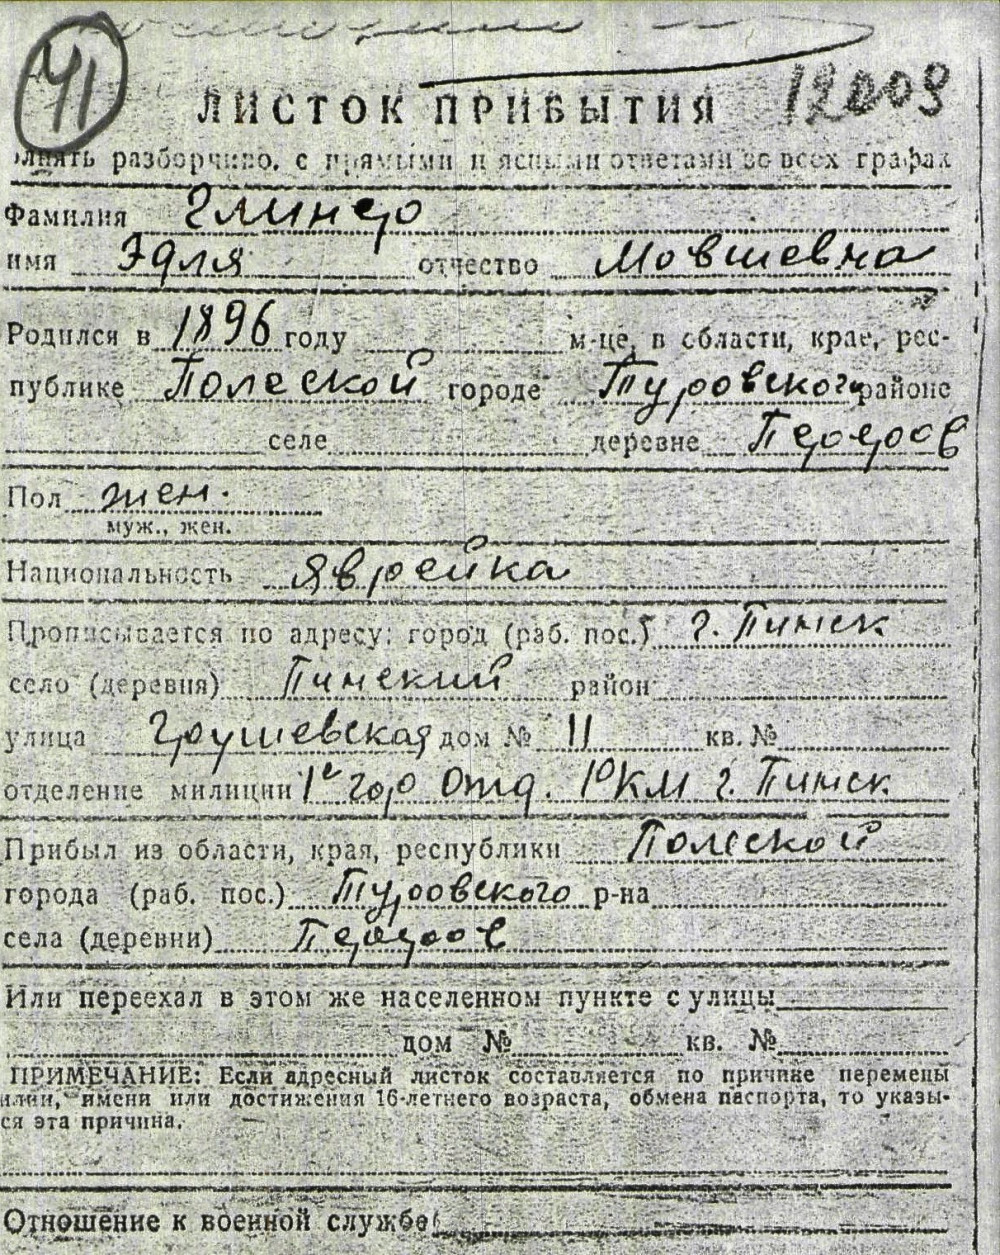 41
ЛИСТОК ПРИБЫТИЯ 12009
олнять разборчиво, с прямыми и ясными ответами во всех графах
Фамилия Глинер
имя Эдля отчество Мовшевна
Родился в 1896 году м-це, в области, крае, рес-
публике Полеской городе Туровского районе
селе деревне
Пол жен.
муж., жен.
Национальность Яврейка
Прописывается по адресу: город (раб. пос.) г. Пинск
село (деревня) Пинский район
улица Грушевская дом № 11 кв. №
отделение милиции 1е гор отд. РКМ г. Пинск
Прибыл из области, края, республики Полеской
города (раб. пос.) Туровского р-на
села (деревни)
Или переехал в этом же населенном пункте с улицы
дом № кв. №
ПРИМЕЧАНИЕ: Если адресный листок составляется по причине перемены
илии, имени или достижения 16-летнего возраста, обмена паспорта, то указы-
ся эта причина.
Отношение к военной службе